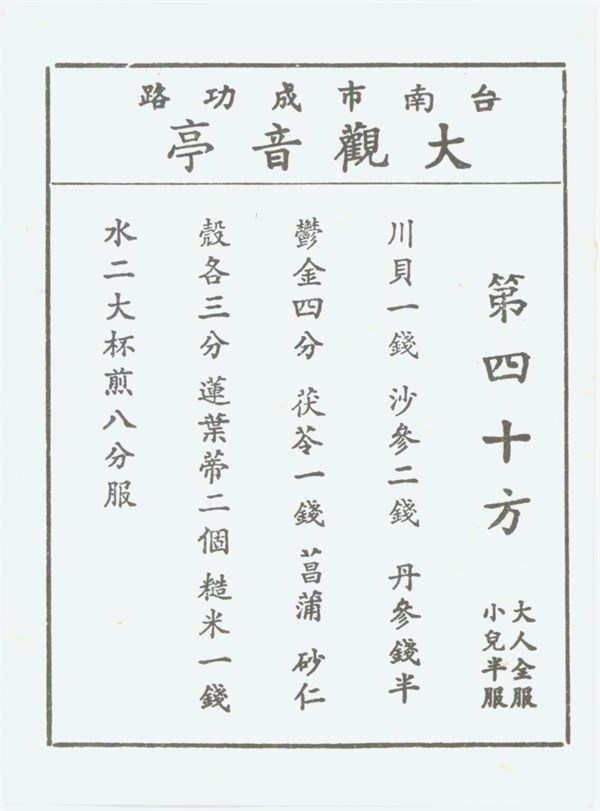 台南市成功路
大觀音亭
第四十方
大人全服
小兒半服
川貝一錢 沙參二錢 丹參錢半
鬱金四分 茯苓一錢 菖蒲 砂仁
殼各三分 蓮葉蒂二個 糙米一錢
水二大杯煎八分服